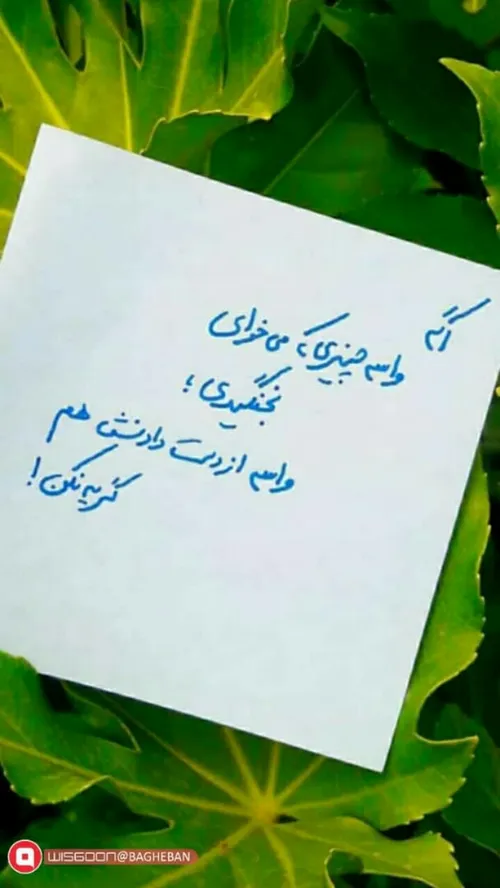 اگه
واسه چیزی که می خوای
نجنگیدی؛
واسه از دست دادنش هم
گریه نکن!
WISGOON@BAGHEBAN